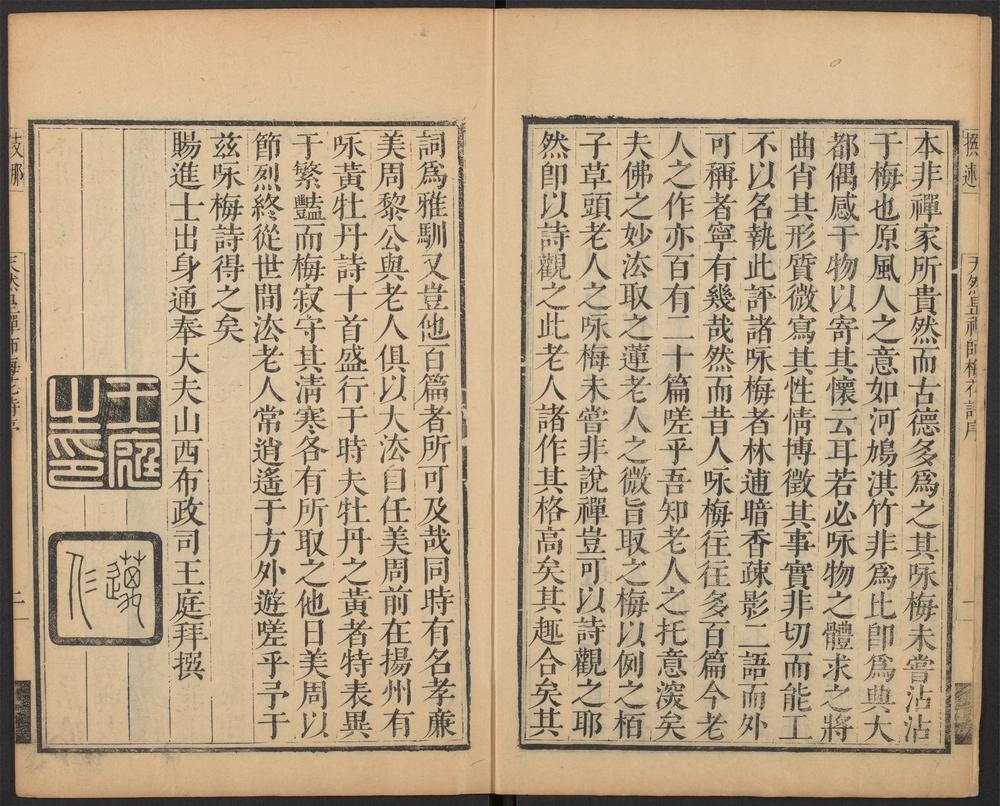 本非禪家所貴然而古德多爲之其咏梅未嘗沾沾
于梅也原風人之意如河鳩淇竹非爲比卽爲典大
都偶感于物以寄其懷云耳若必咏物之體求之將
曲肖其形質微寫其性情博徵其事實非切而能工
不以名執此評諸咏梅者林逋暗香疎影二語而外
可稱者寧有幾哉然而昔人咏梅往往多百篇今老
人之作亦百有二十篇嗟乎吾知老人之托意深矣
夫佛之妙法取之蓮老人之微旨取之梅以例之栢
子草頭老人之咏梅未嘗非說禪豈可以詩觀之耶
然卽以詩觀之此老人諸作其格高矣其趣合矣其
天然昰禪師梅花詩序
一
詞爲雅馴又豈他百篇者所可及哉同時有名孝亷
美周黎公與老人俱以大法自任美周前在揚州有
咏黃牡丹詩十首盛行于時夫牡丹之黃者特表異
于繁豔而梅寂守其清寒各有所取之他日美周以
節烈終從世間法老人常逍遙于方外遊嗟乎予于
茲咏梅詩得之矣
賜進士出身通奉大夫山西布政司王庭拜撰
王庭之印
天然昰禪師梅花詩序
二